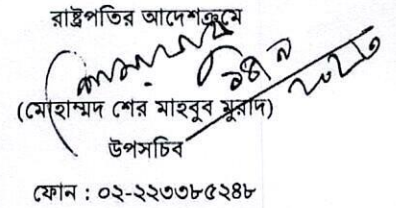 রাষ্ট্রপতির আদেশক্রমে
(মোহাম্মদ শের মাহবুব মুরাদ)
উপসচিব
ফোন : ০২-২২৩৩৮৫২৪৮